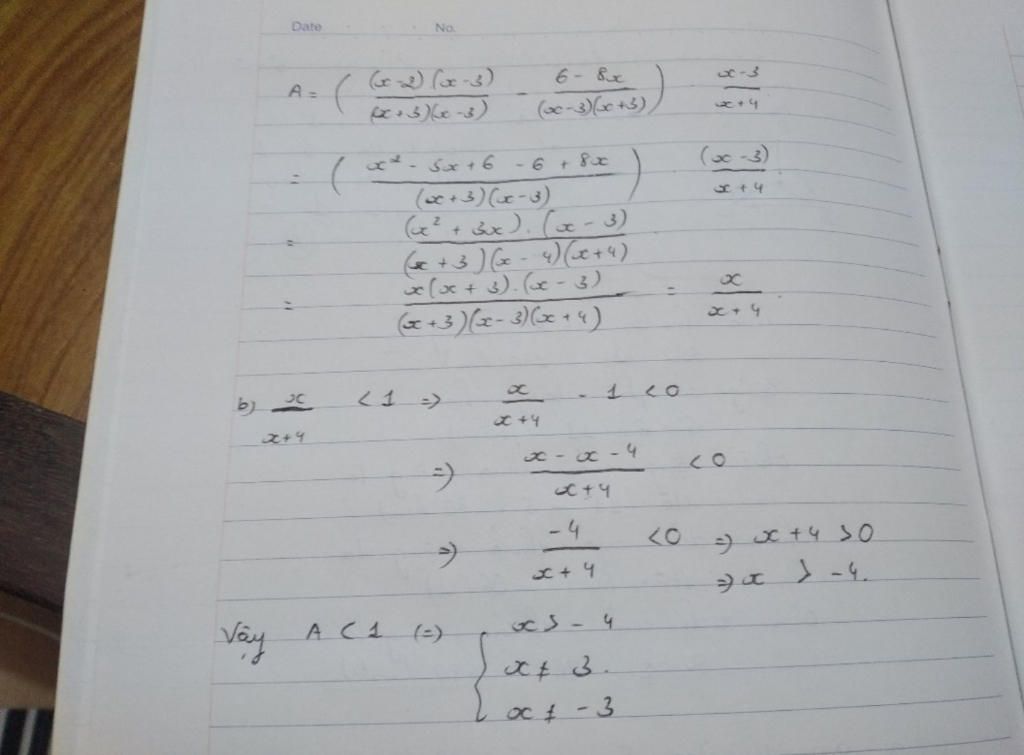 Date No.
A = ( (x-2)(x-3) / (x+3)(x-3) - 6 - 8x / (x-3)(x+3) ) x-3 / x+4
= ( x² - 5x + 6 - 6 + 8x / (x+3)(x-3) ) (x-3) / x+4
= (x² + 3x).(x - 3) / (x+3)(x-4)(x+4)
= x(x+3).(x-3) / (x+3)(x-3)(x+4) = x / x+4
b) x / x+4 < 1 => x / x+4 - 1 < 0
=> x - x - 4 / x+4 < 0
=> -4 / x+4 < 0 => x + 4 > 0
=> x > -4.
Vậy A < 1 (=) { x > - 4
x ≠ 3.
x ≠ -3